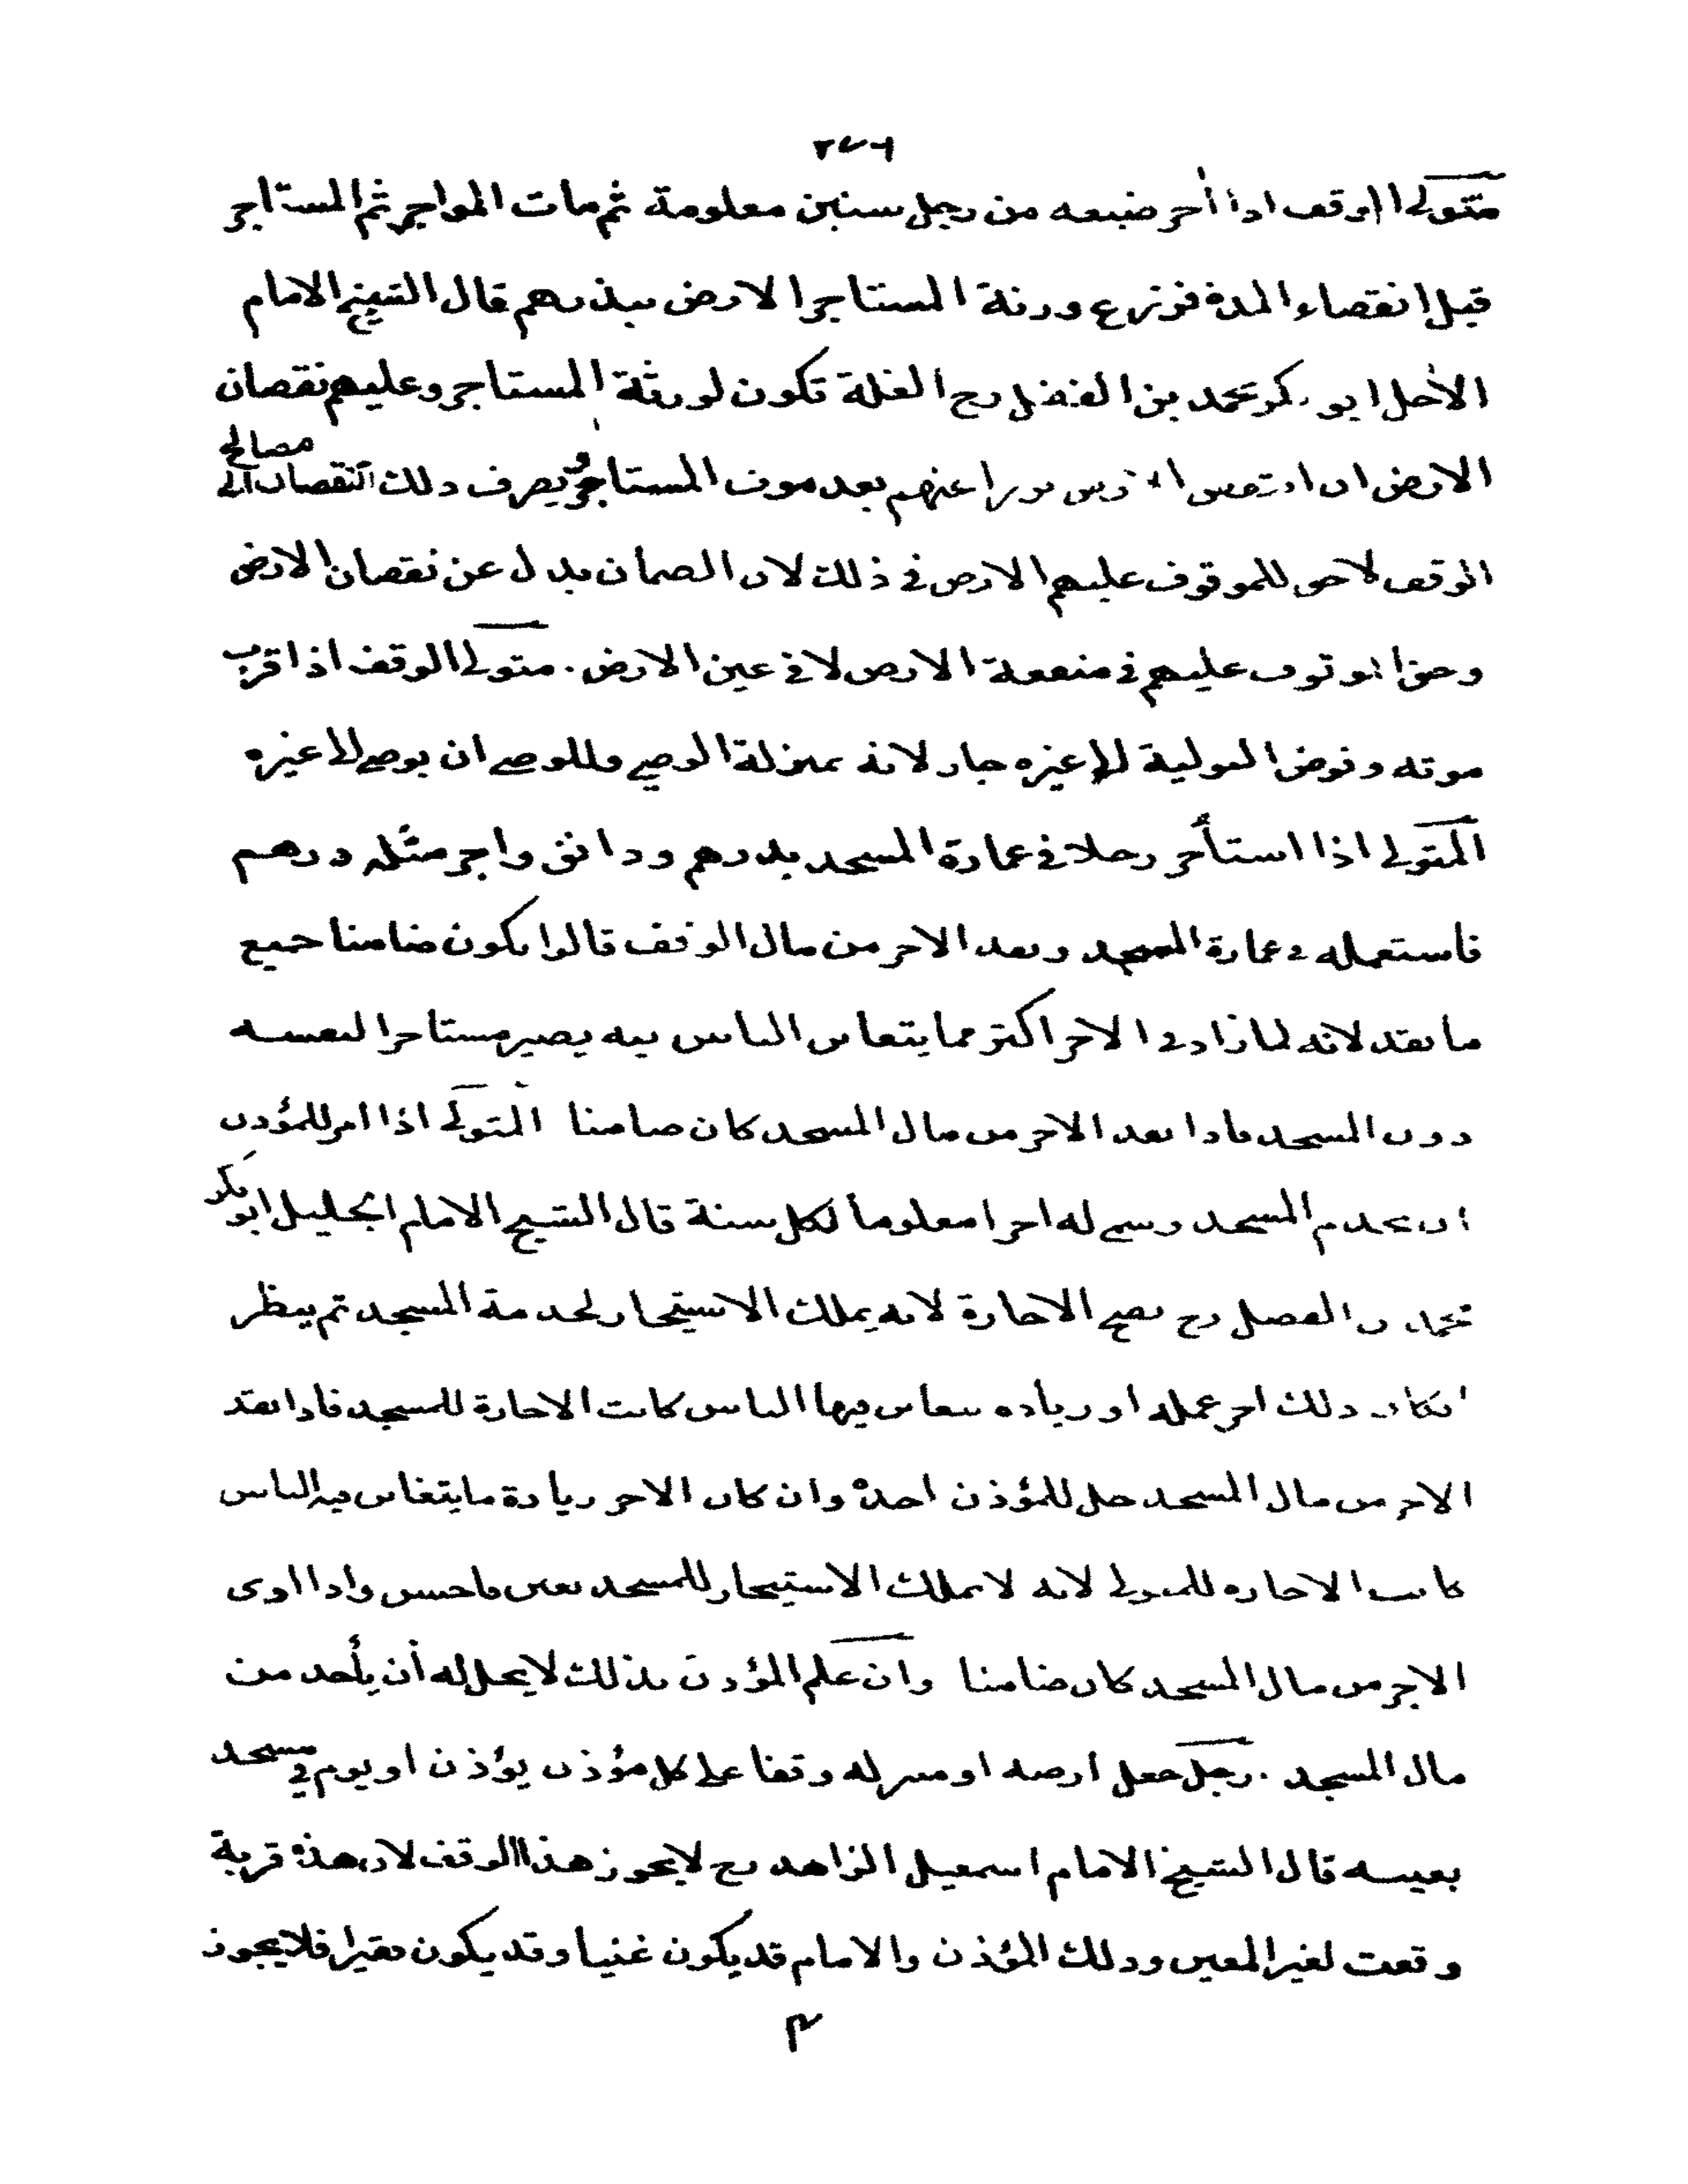 متولى الوقف اذا أجر ضيعه من رجل سنين معلومة ثم مات المواجر ثم المستاجر
قبل انقضاء المدة فزرع ورثة المستاجر الارض ببذرهم قال الشيخ الامام
الاجل ابو بكر محمد بن الفضل رح الغلة تكون لورثة المستاجر وعليهم نقصان
الارض ان انتقص الارض بزراعتهم بعد موت المستاجر ويصرف ذلك النقصان الى مصالح
الوقف لا حق للموقوف عليهم الارض في ذلك لان الضمان بدل عن نقصان الارض
وحق الموقوف عليهم في منفعة الارض لا في عين الارض . متولى الوقف اذا قرب
موته وفوض التولية الى غيره جاز لانه بمنزلة الوصي وللوصي ان يوصي الى غيره
المتولي اذا استأجر رجلا في عمارة المسجد بدرهم ودانق واجر مثله درهم
فاستعمله في عمارة المسجد ونقد الاجر من مال الوقف قالوا يكون ضامنا جميع
ما نقد لانه لما زاد في الاجر اكثر مما يتغابن الناس فيه يصير مستاجرا لنفسه
دون المسجد فاذا نقد الاجر من مال المسجد كان ضامنا المتولى اذا امر للمؤذن
ان يخدم المسجد وسمى له اجرا معلوما لكل سنة قال الشيخ الامام الجليل ابو بكر
محمد بن الفضل رح تصح الاجارة لانه يملك الاستيجار لخدمة المسجد ثم ينظر
ان كان ذلك اجر عمله او زيادة يتغابن فيها الناس كانت الاجارة للمسجد فاذا نقد
الاجر من مال المسجد حل للمؤذن اخذه وان كان الاجر زيادة ما يتغابن فيه الناس
كانت الاجاره للمتولى لانه لا يملك الاستيجار للمسجد بغبن فاحش واذا ادى
الاجر من مال المسجد كان ضامنا وان علم المؤذن بذلك لا يحل له أن يأخذ من
مال المسجد . رجل جعل ارضه او منزله وقفا على كل مؤذن يؤذن او يوم في مسجد
بعينه قال الشيخ الامام اسمعيل الزاهد رح لا يجوز هذا الوقف لان هذه قربة
وقعت لغير المعين وذلك المؤذن والامام قد يكون غنيا وقد يكون فقيرا فلا يجوز